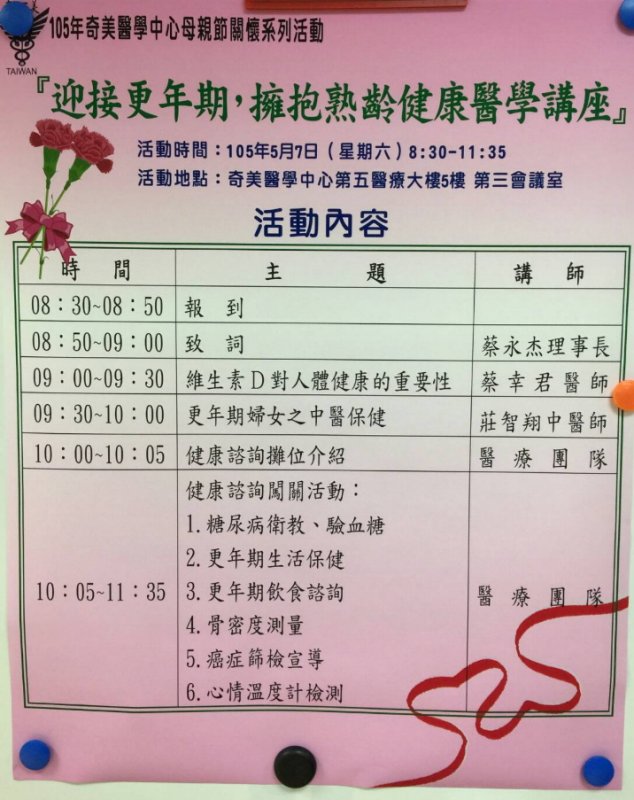 TAIWAN
105年奇美醫學中心母親節關懷系列活動
『迎接更年期，擁抱熟齡健康醫學講座』
活動時間：105年5月7日（星期六）8:30-11:35
活動地點：奇美醫學中心第五醫療大樓5樓 第三會議室
活動內容
時 間 主 題 講 師
08：30~08：50 報 到
08：50~09：00 致 詞 蔡永杰理事長
09：00~09：30 維生素D對人體健康的重要性 蔡幸君醫師
09：30~10：00 更年期婦女之中醫保健 莊智翔中醫師
10：00~10：05 健康諮詢攤位介紹 醫 療 團 隊
健康諮詢闖關活動：
1.糖尿病衛教、驗血糖
2.更年期生活保健
10：05~11：35 3.更年期飲食諮詢 醫 療 團 隊
4.骨密度測量
5.癌症篩檢宣導
6.心情溫度計檢測